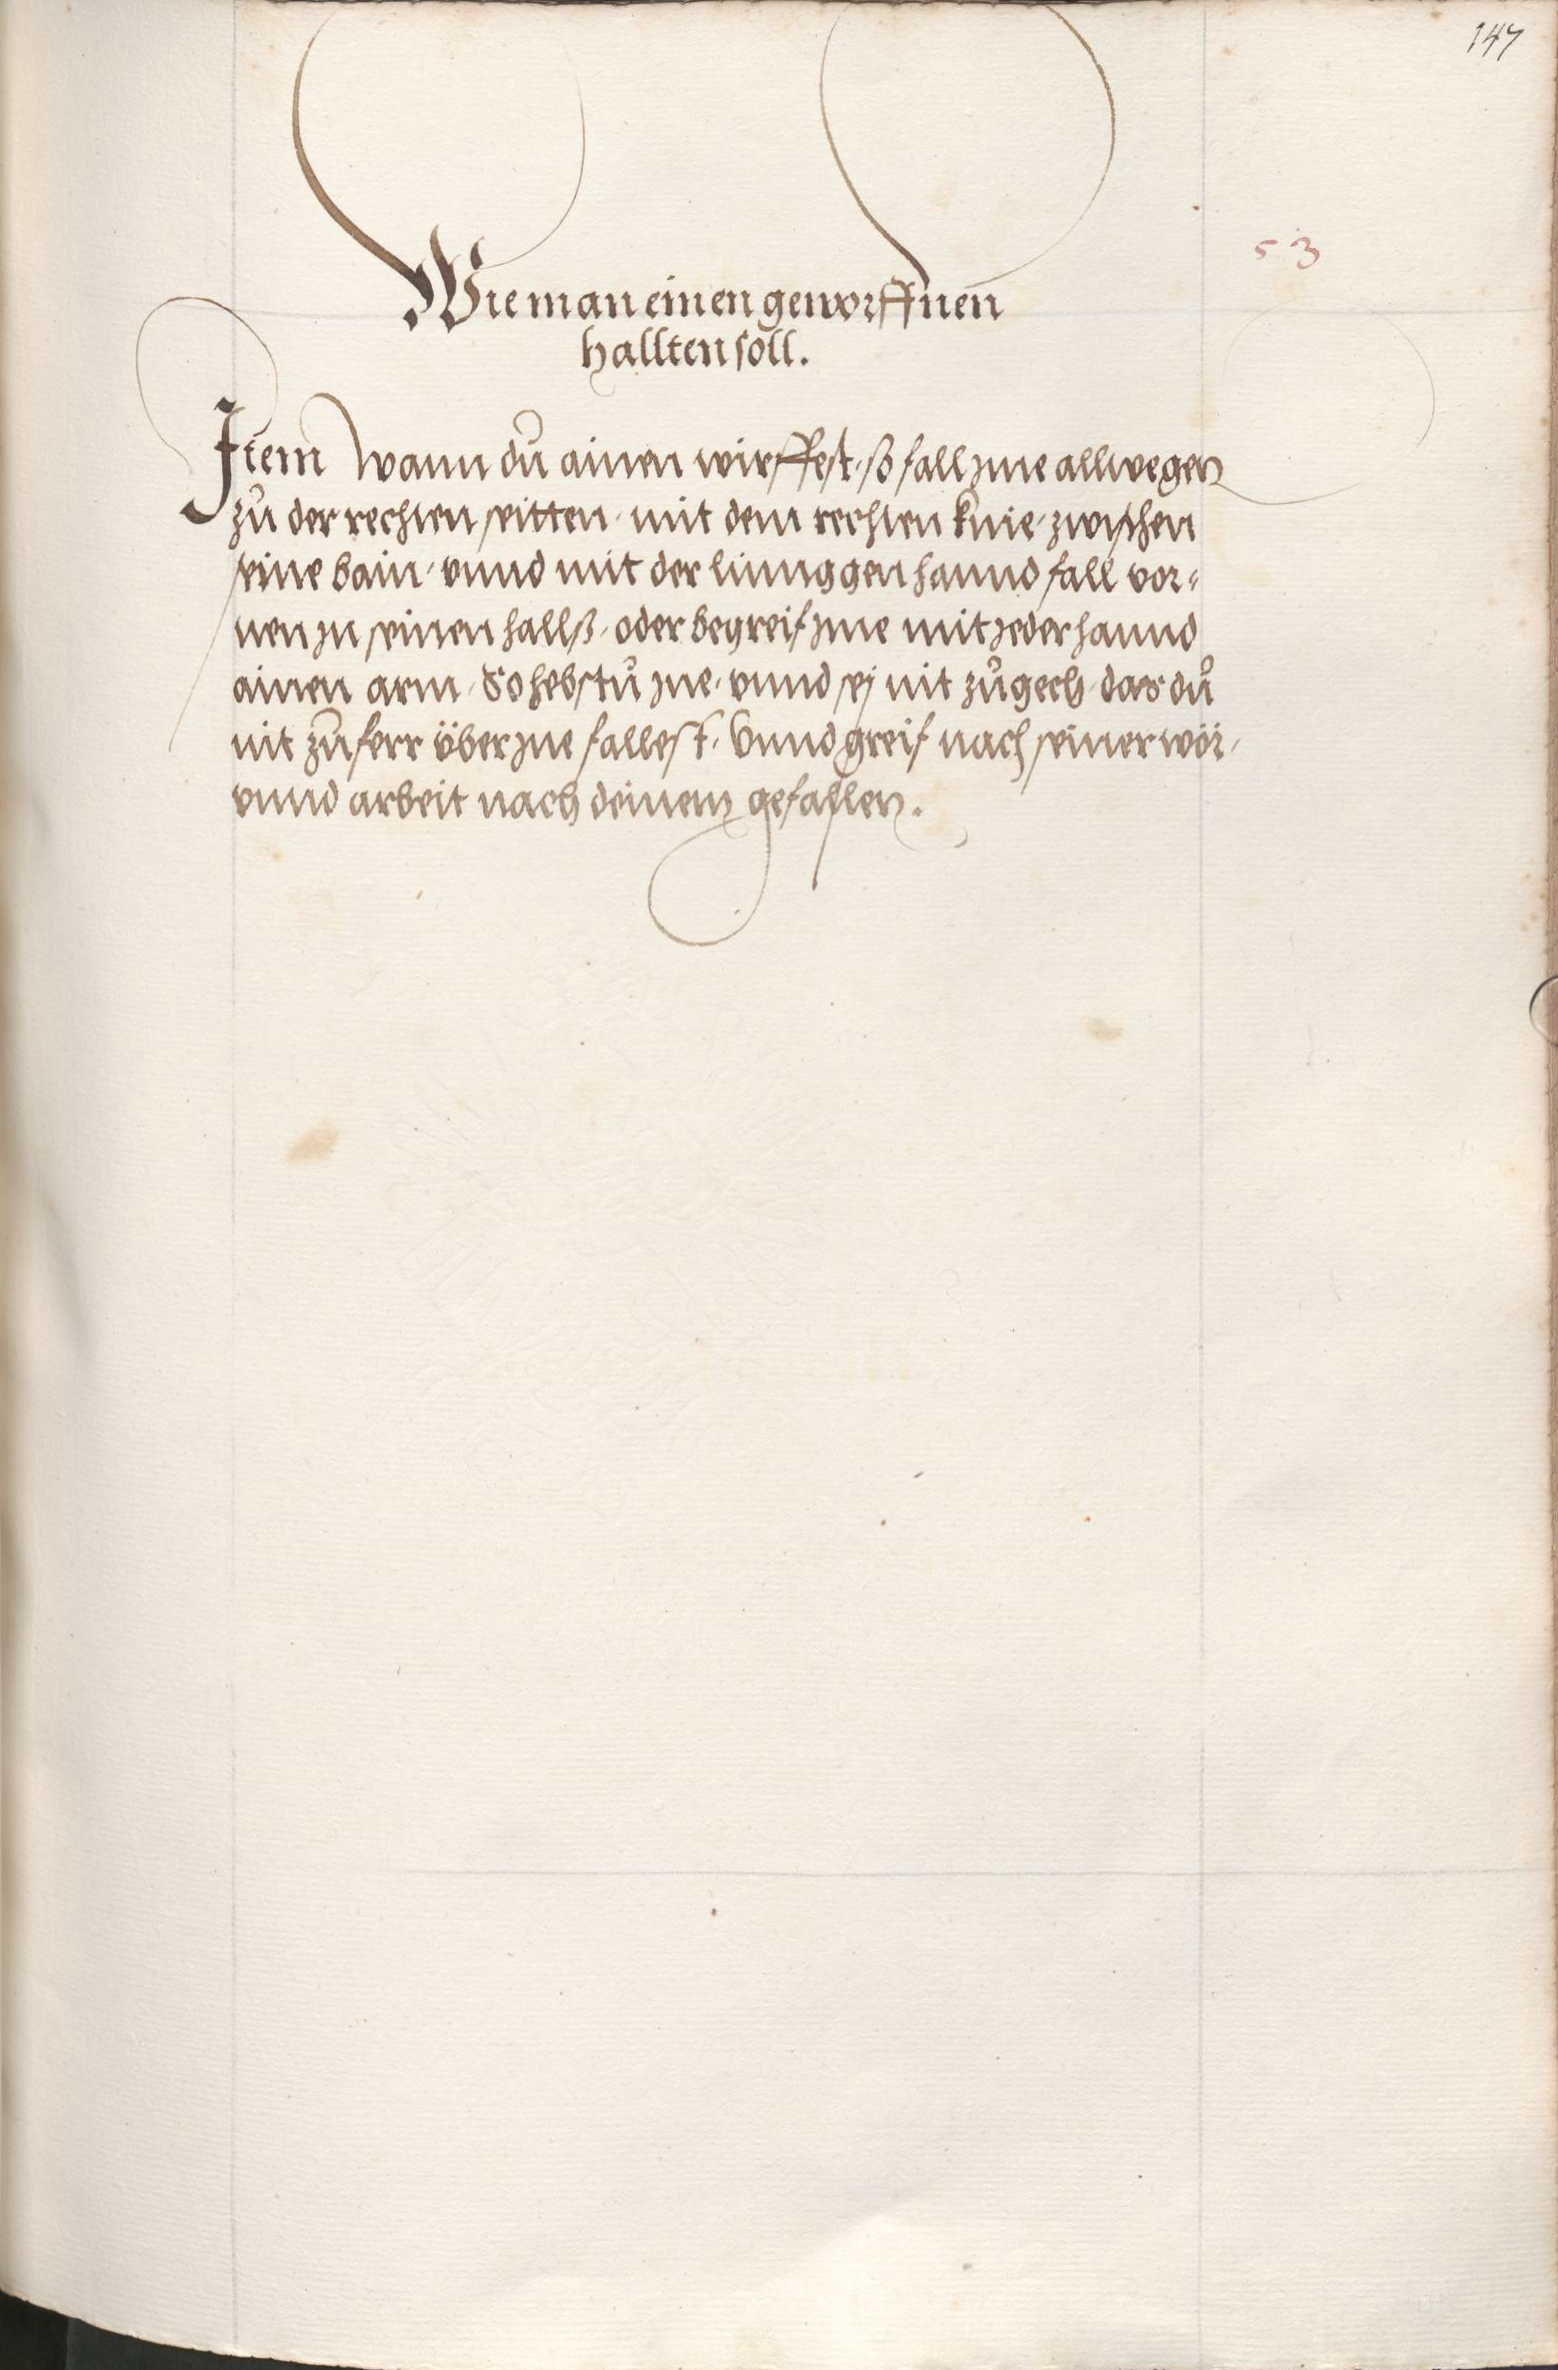 147
53
Wie man einen geworffnen
hallten soll.
Jtem Wann dů ainen wirffest, so fall jne allwegen
zů der rechten seitten, mit dem rechten knie, zwischen
seine bain, vnnd mit der linnggen hannd fall vor-
nen jn seinen hallß, oder begreif jne mit jeder hannd
ainen arm, So hebstů jne, vnnd sej nit zůgech, das dů
nit zůferr über jne fallest, Vnnd greif nach seiner wör,
vnnd arbeit nach deinem gefallen.